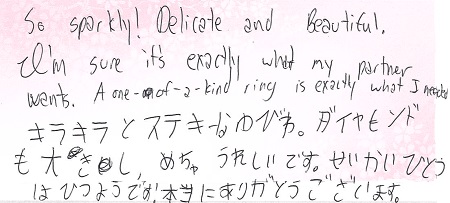 So sparkly! Delicate and Beautiful.
I'm sure it's exactly what my partner
wants. A one-of-a-kind ring is exactly what I needed
キラキラとステキなゆびわ。ダイヤモンド
も大きし、めちゃうれしいです。せいかいひとう
はひつようです!本当にありがとうございます。